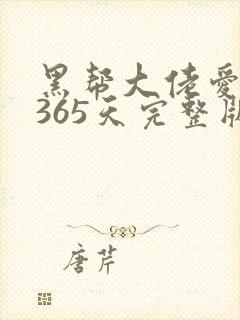 黑帮大佬爱
365天完整版
唐芹